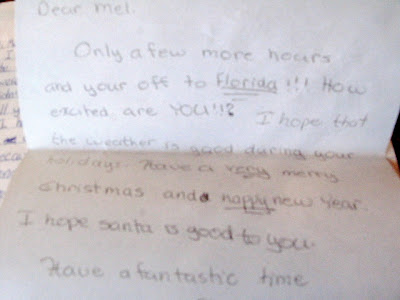 Dear Mel.
Only a few more hours
and your off to Florida!!! How
excited are YOU!!? I hope that
the weather is good during your
holidays. Have a very merry
christmas and a happy new year.
I hope santa is good to you.
Have a fantastic time